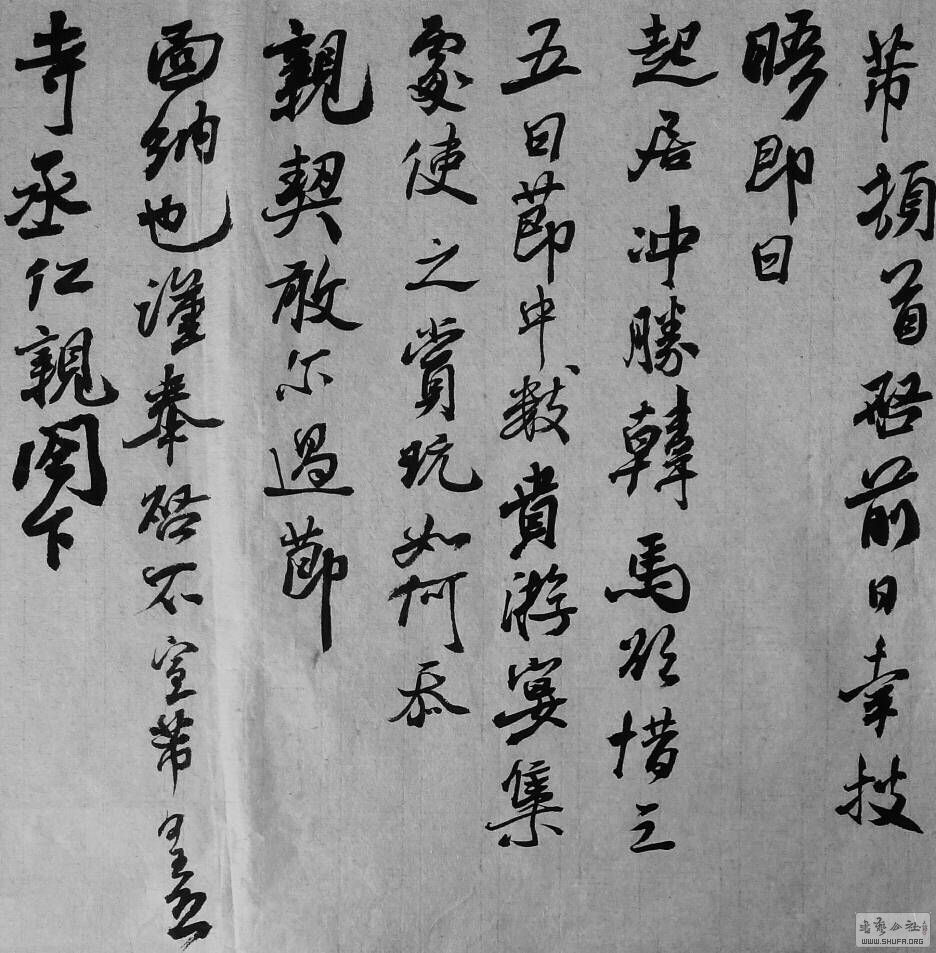 芾頓首啓前日幸披
晤即日
起居冲勝韓馬欲借三
五日節中數貴游宴集
處使之賞玩如何忝
親契敢尔過節
面納也謹奉啓不宣芾皇恐
寺丞仁親閣下
書藝公社
WWW.SHUFA.ORG